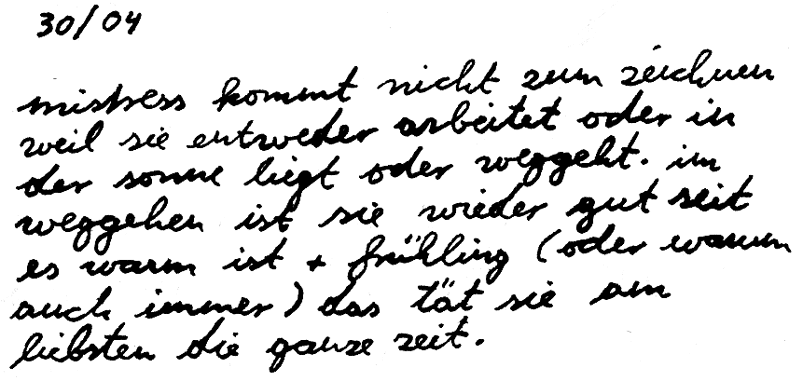 30/04
mistress kommt nicht zum zeichnen
weil sie entweder arbeitet oder in
der sonne liegt oder weggeht. im
weggehen ist sie wieder gut seit
es warm ist + frühling (oder warum
auch immer) das tät sie am
liebsten die ganze zeit.